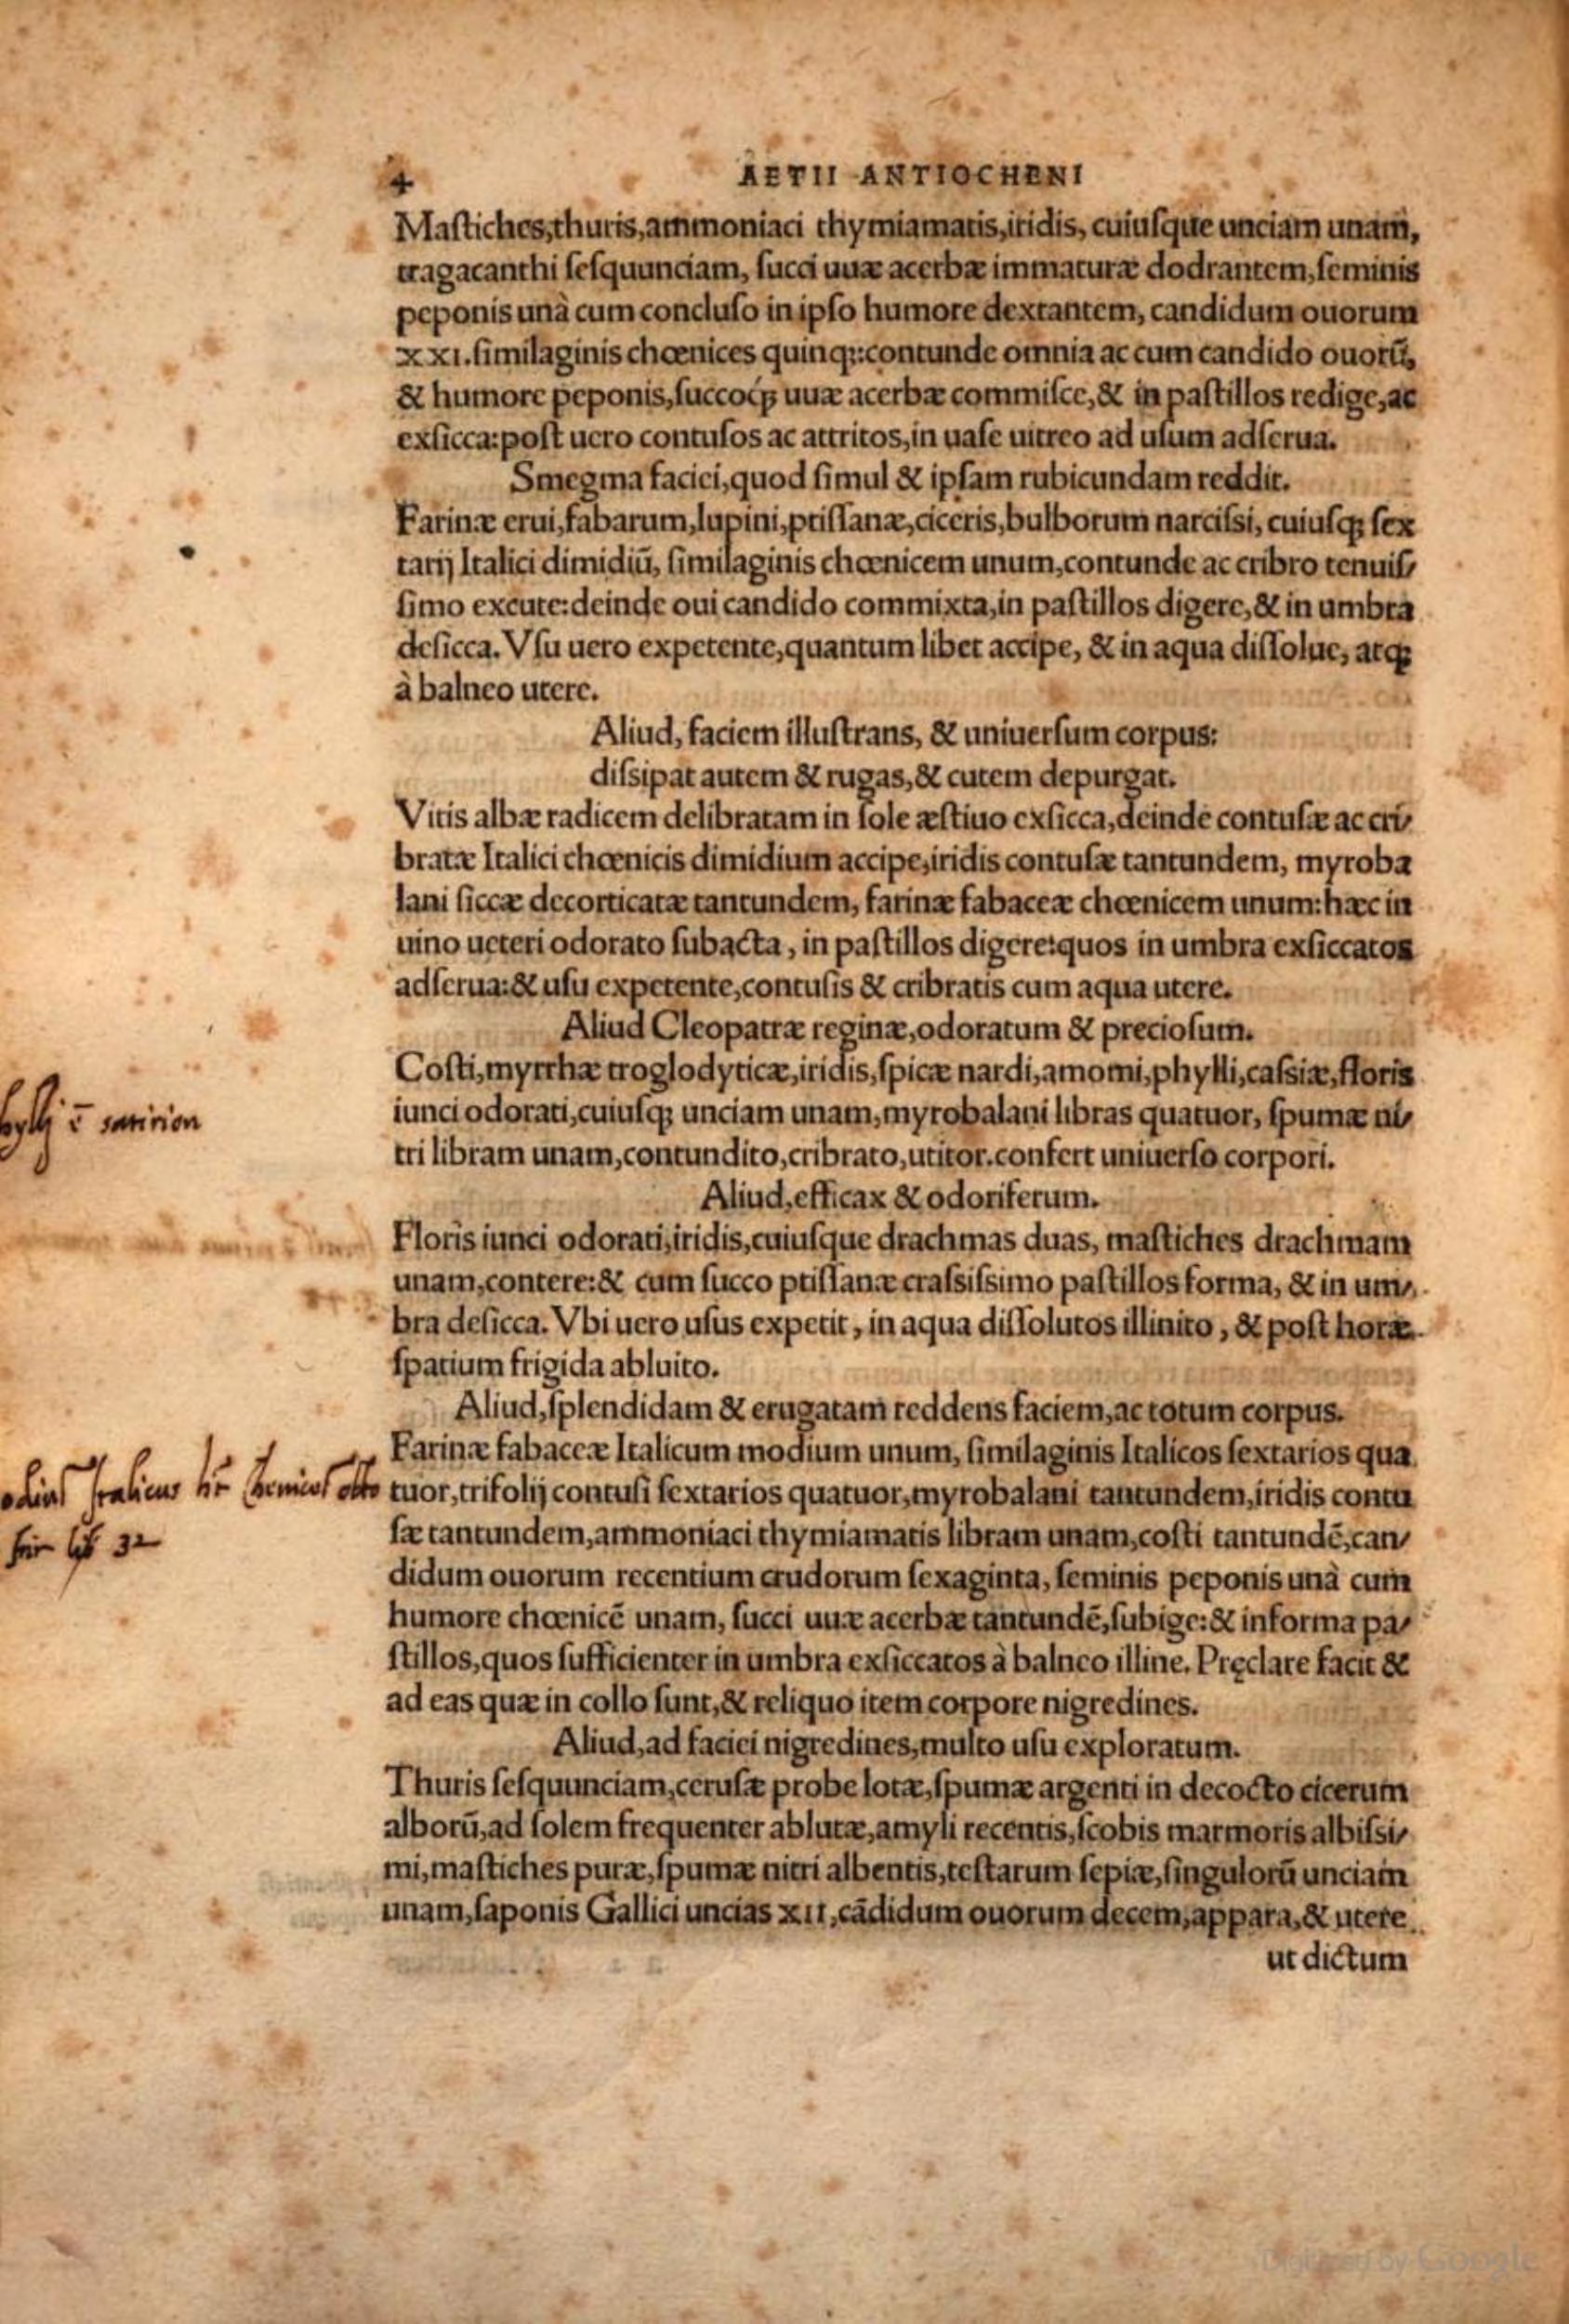 4 AETII ANTIOCHENI
Mastiches,thuris,ammoniaci thymiamatis,iridis, cuiusque unciam unam,
tragacanthi sesquunciam, succi uuæ acerbæ immaturæ dodrantem,seminis
peponis unà cum concluso in ipso humore dextantem, candidum ouorum
XXI.similaginis chœnices quinqꝫ:contunde omnia ac cum candido ouorū,
& humore peponis,succoqꝫ uuæ acerbæ commisce,& in pastillos redige,ac
exsicca:post uero contusos ac attritos,in uase uitreo ad usum adserua.
Smegma faciei,quod simul & ipsam rubicundam reddit.
Farinæ erui,fabarum,lupini,ptissanæ,ciceris,bulborum narcissi, cuiusqꝫ sex
tarij Italici dimidiū, similaginis chœnicem unum,contunde ac cribro tenuis/
simo excute:deinde oui candido commixta,in pastillos digere,& in umbra
desicca. Vsu uero expetente,quantum libet accipe, & in aqua dissolue, atqꝫ
à balneo utere.
Aliud, faciem illustrans, & uniuersum corpus:
dissipat autem & rugas,& cutem depurgat.
Vitis albæ radicem delibratam in sole æstiuo exsicca,deinde contusæ ac cri/
bratæ Italici chœnicis dimidium accipe,iridis contusæ tantundem, myroba
lani siccæ decorticatæ tantundem, farinæ fabaceæ chœnicem unum:hæc in
uino ueteri odorato subacta, in pastillos digere:quos in umbra exsiccatos
adserua:& usu expetente,contusis & cribratis cum aqua utere.
Aliud Cleopatræ reginæ,odoratum & preciosum.
Costi,myrrhæ troglodyticæ,iridis,spicæ nardi,amomi,phylli,cassiæ,floris
iunci odorati,cuiusqꝫ unciam unam,myrobalani libras quatuor, spumæ ni/
tri libram unam,contundito,cribrato,utitor.confert uniuerso corpori.
ē satirion
Aliud,efficax & odoriferum.
Floris iunci odorati,iridis,cuiusque drachmas duas, mastiches drachmam
unam,contere:& cum succo ptissanæ crassissimo pastillos forma, & in um/
bra desicca. Vbi uero usus expetit, in aqua dissolutos illinito, & post horæ
spatium frigida abluito.
Aliud,splendidam & erugatam reddens faciem,ac totum corpus.
Farinæ fabaceæ Italicum modium unum, similaginis Italicos sextarios qua
tuor,trifolij contusi sextarios quatuor,myrobalani tantundem,iridis contu
sæ tantundem,ammoniaci thymiamatis libram unam,costi tantundē,can/
didum ouorum recentium crudorum sexaginta, seminis peponis unà cum
humore chœnicē unam, succi uuæ acerbæ tantundē,subige:& informa pa/
stillos,quos sufficienter in umbra exsiccatos à balneo illine. Pręclare facit &
ad eas quæ in collo sunt,& reliquo item corpore nigredines.
Italicus
32
Aliud,ad faciei nigredines,multo usu exploratum.
Thuris sesquunciam,cerusæ probe lotæ,spumæ argenti in decocto cicerum
alborū,ad solem frequenter ablutæ,amyli recentis,scobis marmoris albissi/
mi,mastiches puræ,spumæ nitri albentis,testarum sepiæ,singulorū unciam
unam,saponis Gallici uncias XII,cādidum ouorum decem,appara,& utere
ut dictum
Digitized by Google